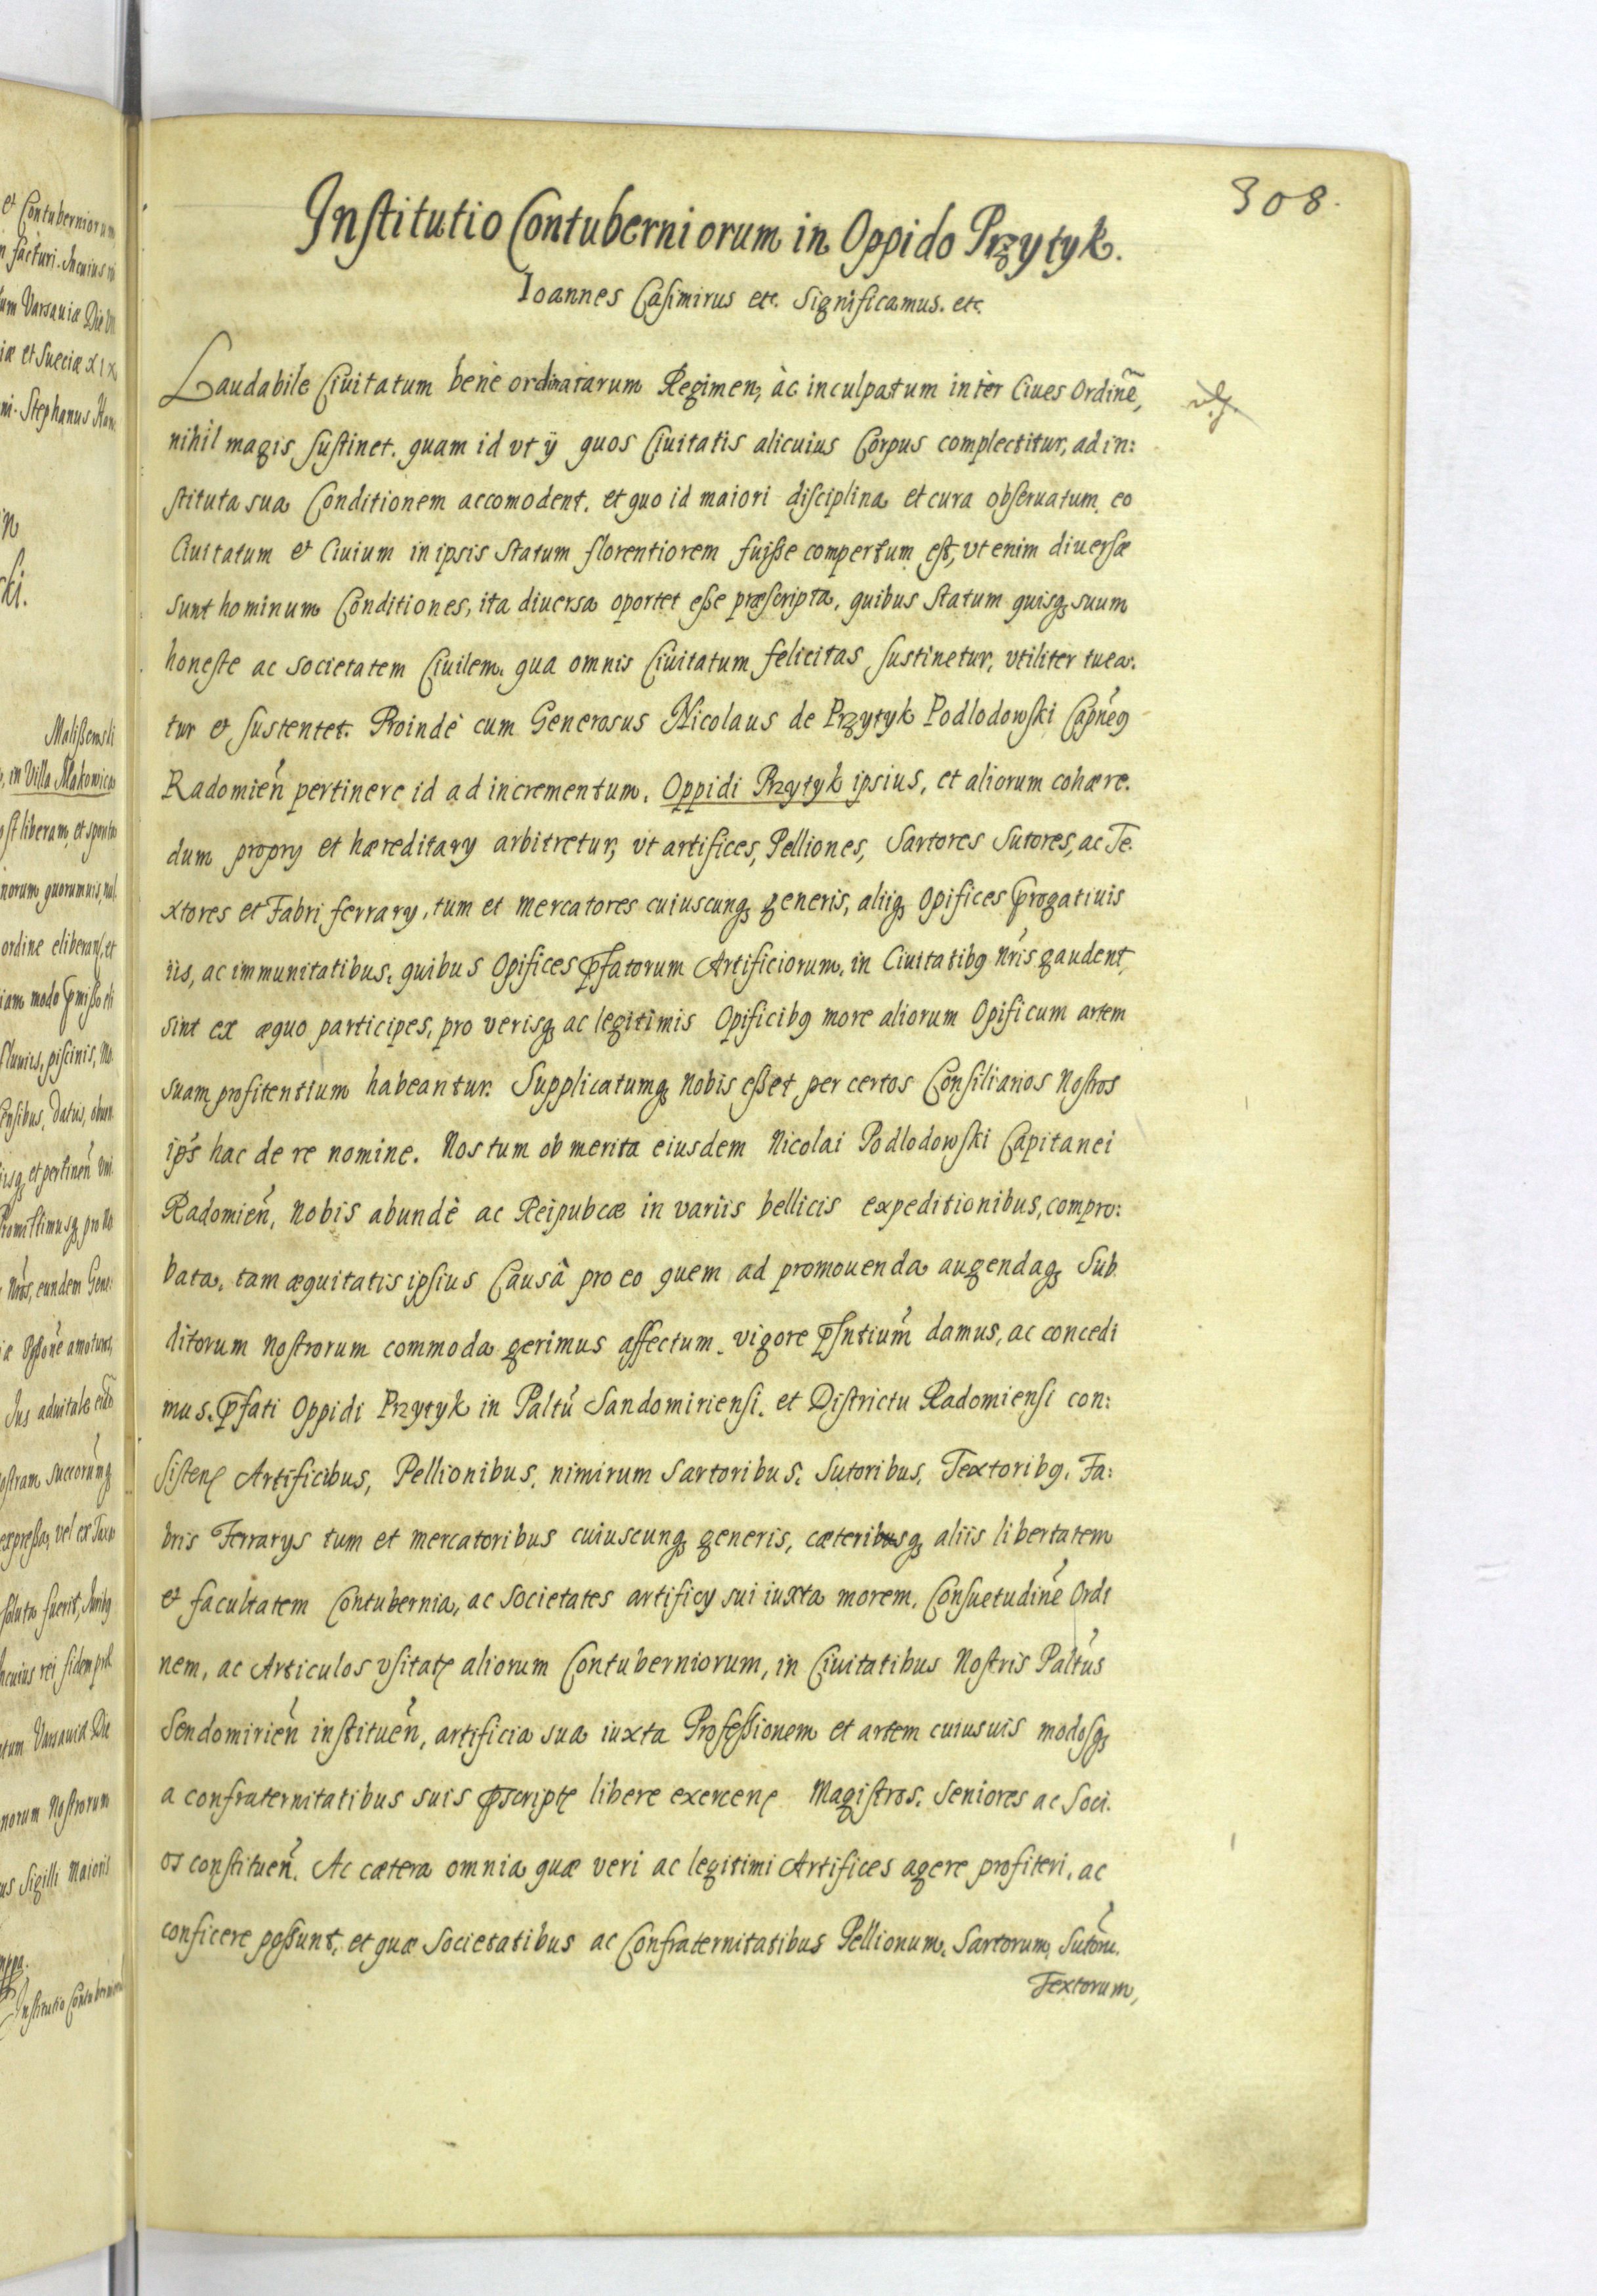 308.
Institutio Contuberniorum in Oppido Przytyk.
Ioannes Casimirus etc. Significamus. etc.
Laudabile Ciuitatum benè ordinatarum Regimen, àc inculpatum intèr Ciues Ordinẽ,
nihil magis sustinet. quam id vt ÿ quos Ciuitatis alicuius Corpus complectitur, ad in:
stituta sua Conditionem accomodent. et quo id maiori disciplina et cura obseruatum eo
Ciuitatum et Ciuium in ipsis Statum florentiorem fuisse compertum est, vt enim diuersæ
sunt hominum Conditiones, ita diuersa oportet esse præscripta, quibus Statum quisq; suum
honeste ac societatem Ciuilem. qua omnis Ciuitatum felicitas sustinetur, vtiliter tuea:
tur et sustentet. Proindè cum Generosus Nicolaus de Przytyk Podlodowski Capneq
Radomien̉ pertinere id ad incrementum. Oppidi Przytyk ipsius, et aliorum cohære.
dum propry et hæreditary arbitretur, vt artifices, Pelliones, Sartores Sutores, ac Te.
xtores et Fabri ferrary, tum et mercatores cuiuscunq; generis, aliiq; Opifices progatiuis
iis, ac immunitatibus. quibus Opifices pfatorum Artificiorum. in Ciuitatibq nris gaudent
sint ex æquo participes, pro verisq; ac legitimis Opificibq more aliorum Opificum artem
suam profitentium habeantur. Supplicatumq; nobis esset per certos Consiliarios Nostros
ip̉s hac de re nomine. Nos tum ob merita eiusdem Nicolai Podlodowski Capitanei
Radomien̉, nobis abundè ac Reipubcæ in variis bellicis expeditionibus, compro:
bata. tam æquitatis ipsius Causâ pro eo quem ad promouenda augendaq; Sub
ditorum nostrorum commoda gerimus affectum. vigore psntium̉ damus, ac concedi
mus. pfati Oppidi Przytyk in Paltủ Sandomiriensi. et Districtu Radomiensi con:
sisten Artificibus, Pellionibus. nimirum Sartoribus. Sutoribus. Textoribq. Fa:
bris Ferrarys tum et mercatoribus cuiuscunq; generis, cæteribusq; aliis libertatem
et facultatem Contubernia, ac societates artificy sui iuxta morem. Consuetudinẻ Ordi
nem, ac Articulos vsitat aliorum Contuberniorum, in Ciuitatibus Nostris Paltủs
Sendomirien̉ instituen̉, artificia sua iuxta Professionem et artem cuiusuis modosq;
a confraternitatibus suis pscript libere exercen Magistros. Seniores ac Soci.
os constituen̉. Ac cætera omnia quæ veri ac legitimi Artifices agere profiteri, ac
conficere possunt, et quæ Societatibus ac Confraternitatibus Pellionum. Sartorum, Sutorủ.
Textorum,